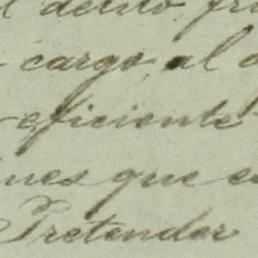 delito fru
cargo al
eficiente
nes que es
Pretender